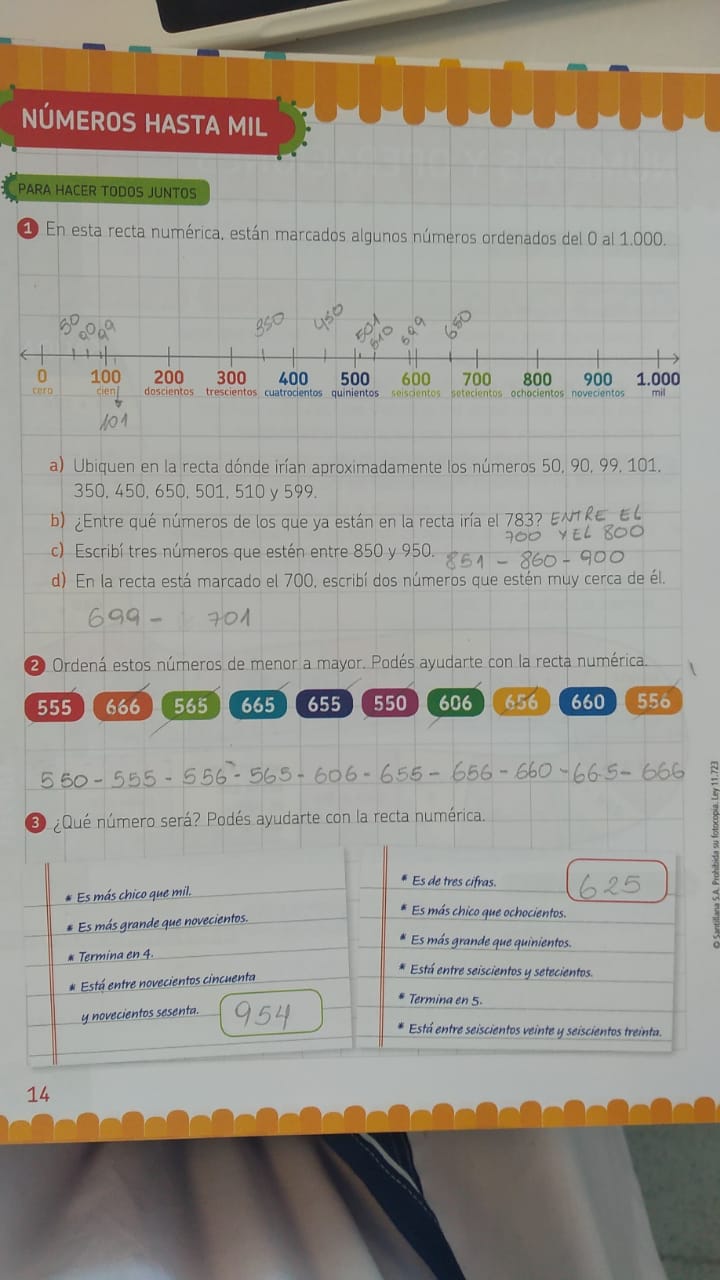 NÚMEROS HASTA MIL
PARA HACER TODOS JUNTOS
1 En esta recta numérica, están marcados algunos números ordenados del 0 al 1.000.
50 90 99 350 450 501 510 599 650
0 100 200 300 400 500 600 700 800 900 1.000
cero cien doscientos trescientos cuatrocientos quinientos seiscientos setecientos ochocientos novecientos mil
101
a) Ubiquen en la recta dónde irían aproximadamente los números 50, 90, 99, 101,
350, 450, 650, 501, 510 y 599.
b) ¿Entre qué números de los que ya están en la recta iría el 783? ENTRE EL
700 Y EL 800
c) Escribí tres números que estén entre 850 y 950. 851 - 860 - 900
d) En la recta está marcado el 700, escribí dos números que estén muy cerca de él.
699 - 701
2 Ordená estos números de menor a mayor. Podés ayudarte con la recta numérica.
555 666 565 665 655 550 606 656 660 556
550 - 555 - 556 - 565 - 606 - 655 - 656 - 660 - 665 - 666
3 ¿Qué número será? Podés ayudarte con la recta numérica.
* Es más chico que mil.
* Es más grande que novecientos.
* Termina en 4.
* Está entre novecientos cincuenta
y novecientos sesenta. 954
* Es de tres cifras. 625
* Es más chico que ochocientos.
* Es más grande que quinientos.
* Está entre seiscientos y setecientos.
* Termina en 5.
* Está entre seiscientos veinte y seiscientos treinta.
© Santillana S.A. Prohibida su fotocopia. Ley 11.723
14